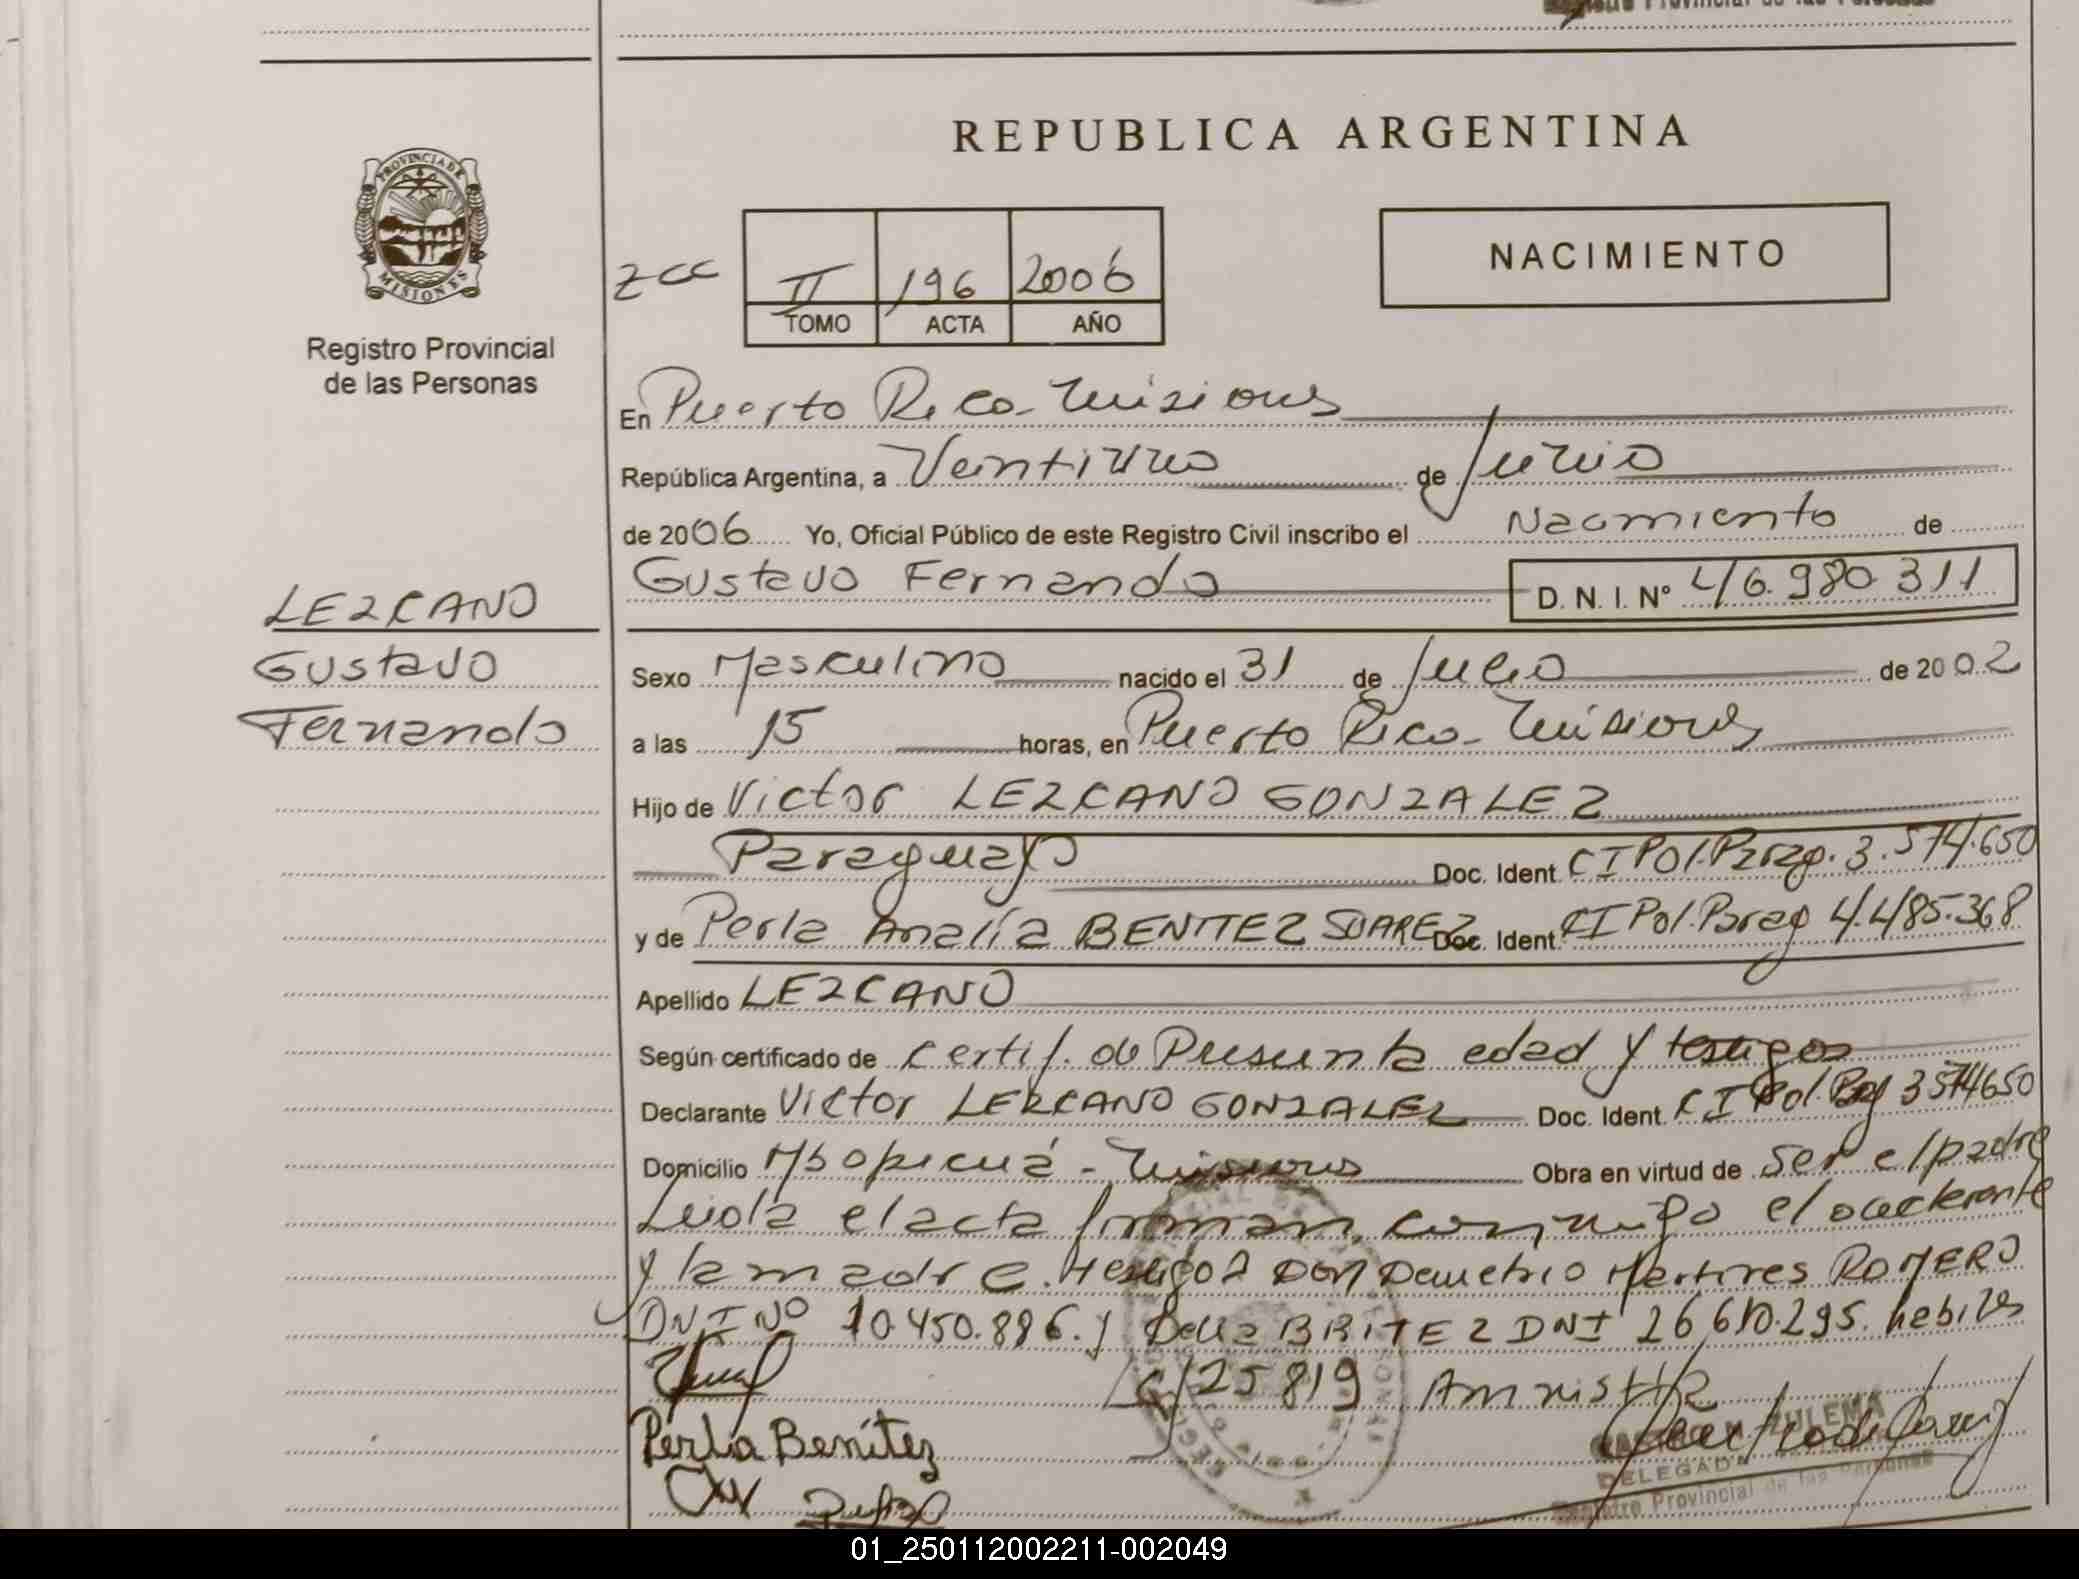 REPUBLICA ARGENTINA
PROVINCIA DE
MISIONES
Registro Provincial
de las Personas
NACIMIENTO
II 196 2006
TOMO ACTA AÑO
En Puerto Rico - Misiones
República Argentina, a Veintiuno de Junio
de 2006 Yo, Oficial Público de este Registro Civil inscribo el Nacimiento de
Gustavo Fernando D. N. I. N° 46.980.311
LEZCANO
Gustavo
Fernando
Sexo Masculino nacido el 31 de Julio de 2002
a las 15 horas, en Puerto Rico - Misiones
Hijo de Victor LEZCANO GONZALEZ
Paraguayo Doc. Ident. CI Pol. Parag. 3.574.650
y de Perla Analía BENITEZ SUAREZ Doc. Ident. CI Pol. Parag 4.485.368
Apellido LEZCANO
Según certificado de Certif. de Presunta edad y testigos
Declarante Victor LEZCANO GONZALEZ Doc. Ident. CI Pol. Parg 3574650
Domicilio Mbopicuá - Misiones Obra en virtud de ser el padre
Leída el acta firman conmigo el declarante
y la madre. Testigos Don Demetrio Martires ROMERO
DNI Nº 10.450.886. y Delia BRITEZ DNI 26.610.295. habiles
25819 Amnistía
Perla Benítez
ZULEMA
DELEGADA
Registro Provincial de las Personas
01_250112002211-002049